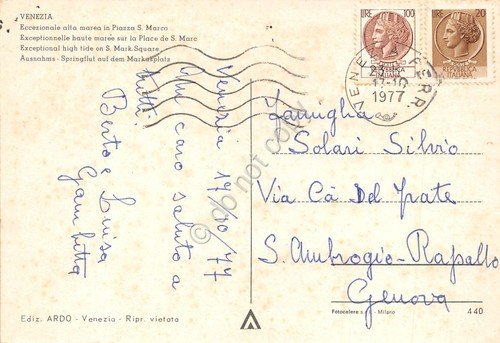 VENEZIA
Eccezionale alta marea in Piazza S. Marco
Exceptionnelle haute marée sur la Place de S. Marc
Exceptional high tide on S. Mark Square
Ausnahms - Springflut auf dem Markusplatz
Venezia 17/10/77
Un caro saluto a
tutti.
Berto e Luisa
Gambitta
LIRE 100
LIRE 20
ITALIANA
ITALIANA
VENEZIA FERR
17-10
1977
Famiglia
Solari Silvio
Via Cà Del Frate
S. Ambrogio-Rapallo
Genova
do not copy
Ediz. ARDO - Venezia - Ripr. vietata
Fotocelere s.r.l. - Milano
440